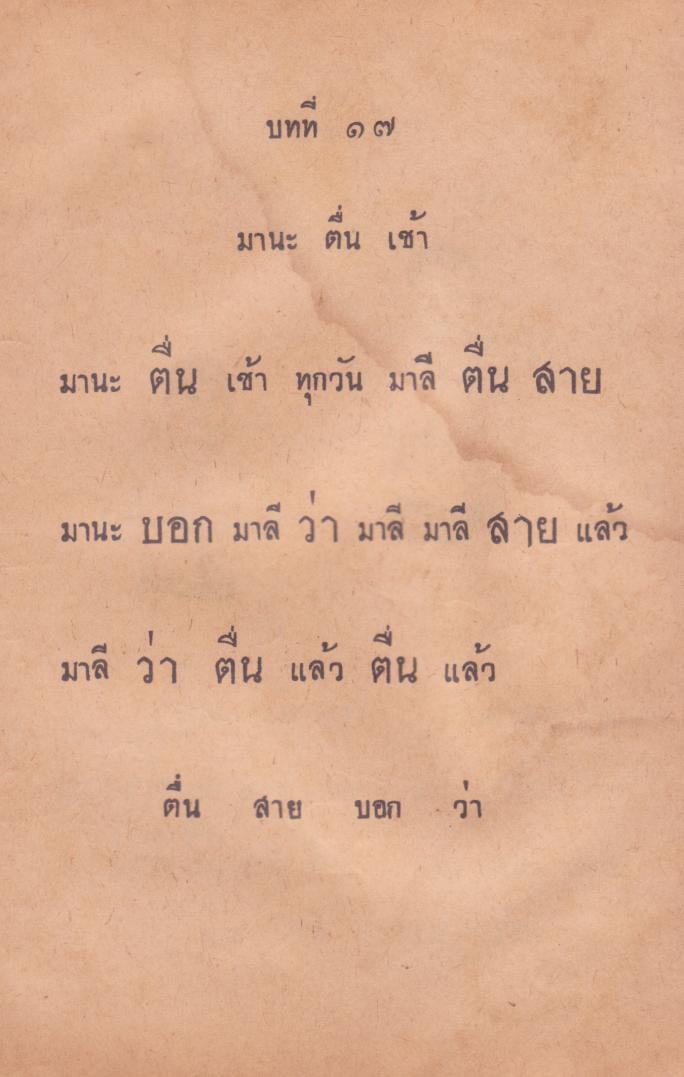 บทที่ ๑๗
มานะ ตื่น เช้า
มานะ ตื่น เช้า ทุกวัน มาลี ตื่น สาย
มานะ บอก มาลี ว่า มาลี มาลี สาย แล้ว
มาลี ว่า ตื่น แล้ว ตื่น แล้ว
ตื่น สาย บอก ว่า